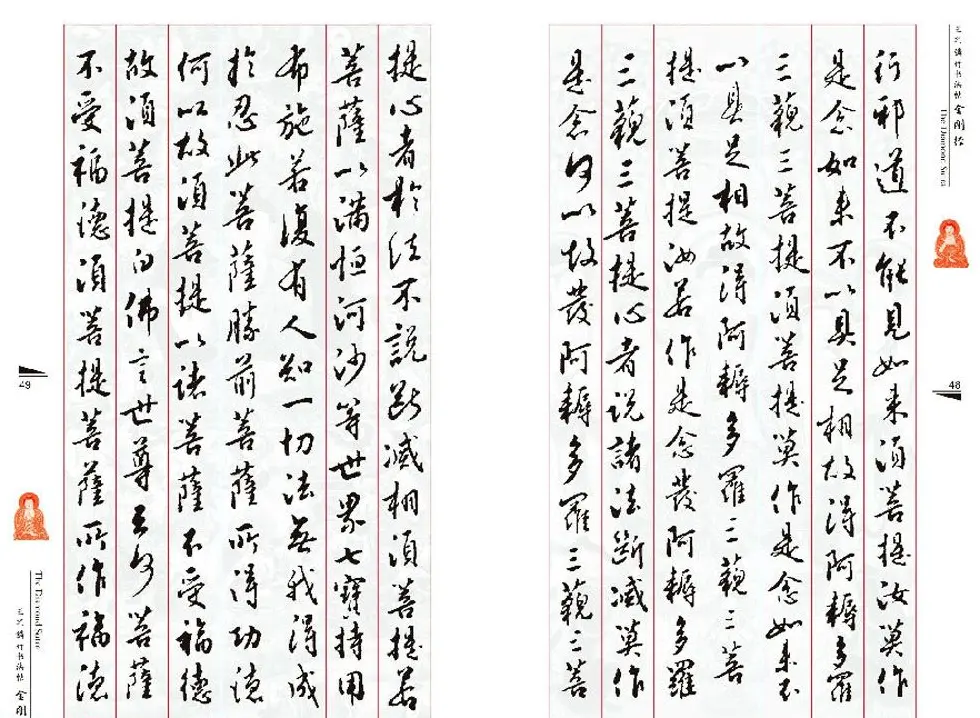 The Diamond Sutra
48
行邪道不能見如来須菩提汝莫作
是念如来不以具足相故得阿耨多羅
三藐三菩提須菩提莫作是念如来不
以具足相故得阿耨多羅三藐三菩
提須菩提汝若作是念發阿耨多羅
三藐三菩提心者说諸法断滅莫作
是念何以故發阿耨多羅三藐三菩
提心者於法不說断滅相須菩提若
菩薩以滿恒河沙等世界七寶持用
布施若復有人知一切法無我得成
於忍此菩薩勝前菩薩所得功德
何以故須菩提以諸菩薩不受福德
故須菩提白佛言世尊云何菩薩
不受福德須菩提菩薩所作福德
49
The Diamond Sutra